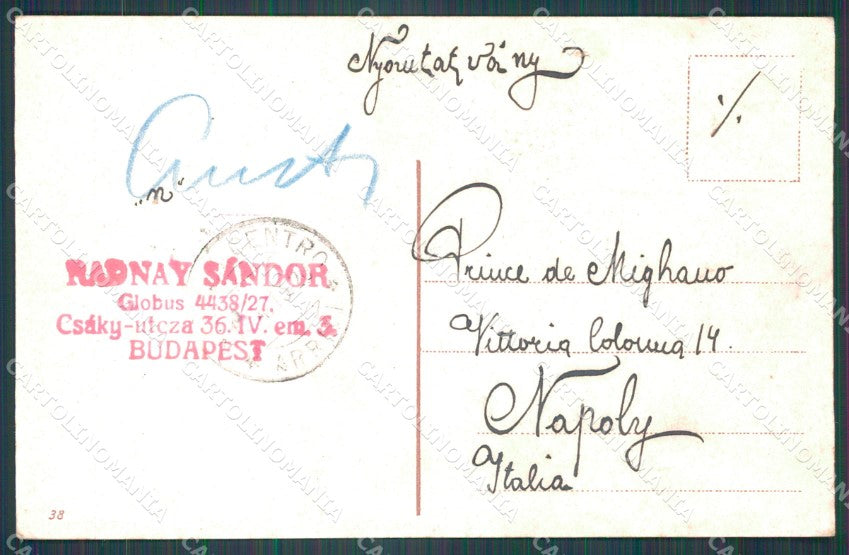 Nyomtatvány
./.
„n“
CENTRO
ARRI
RADNAY SÁNDOR
Globus 4438/27.
Csáky-utcza 36. IV. em. 3.
BUDAPEST
Prince de Mighano
Vittoria Colonna 14.
Napoly
Italia
38
CARTOLINOMANIA